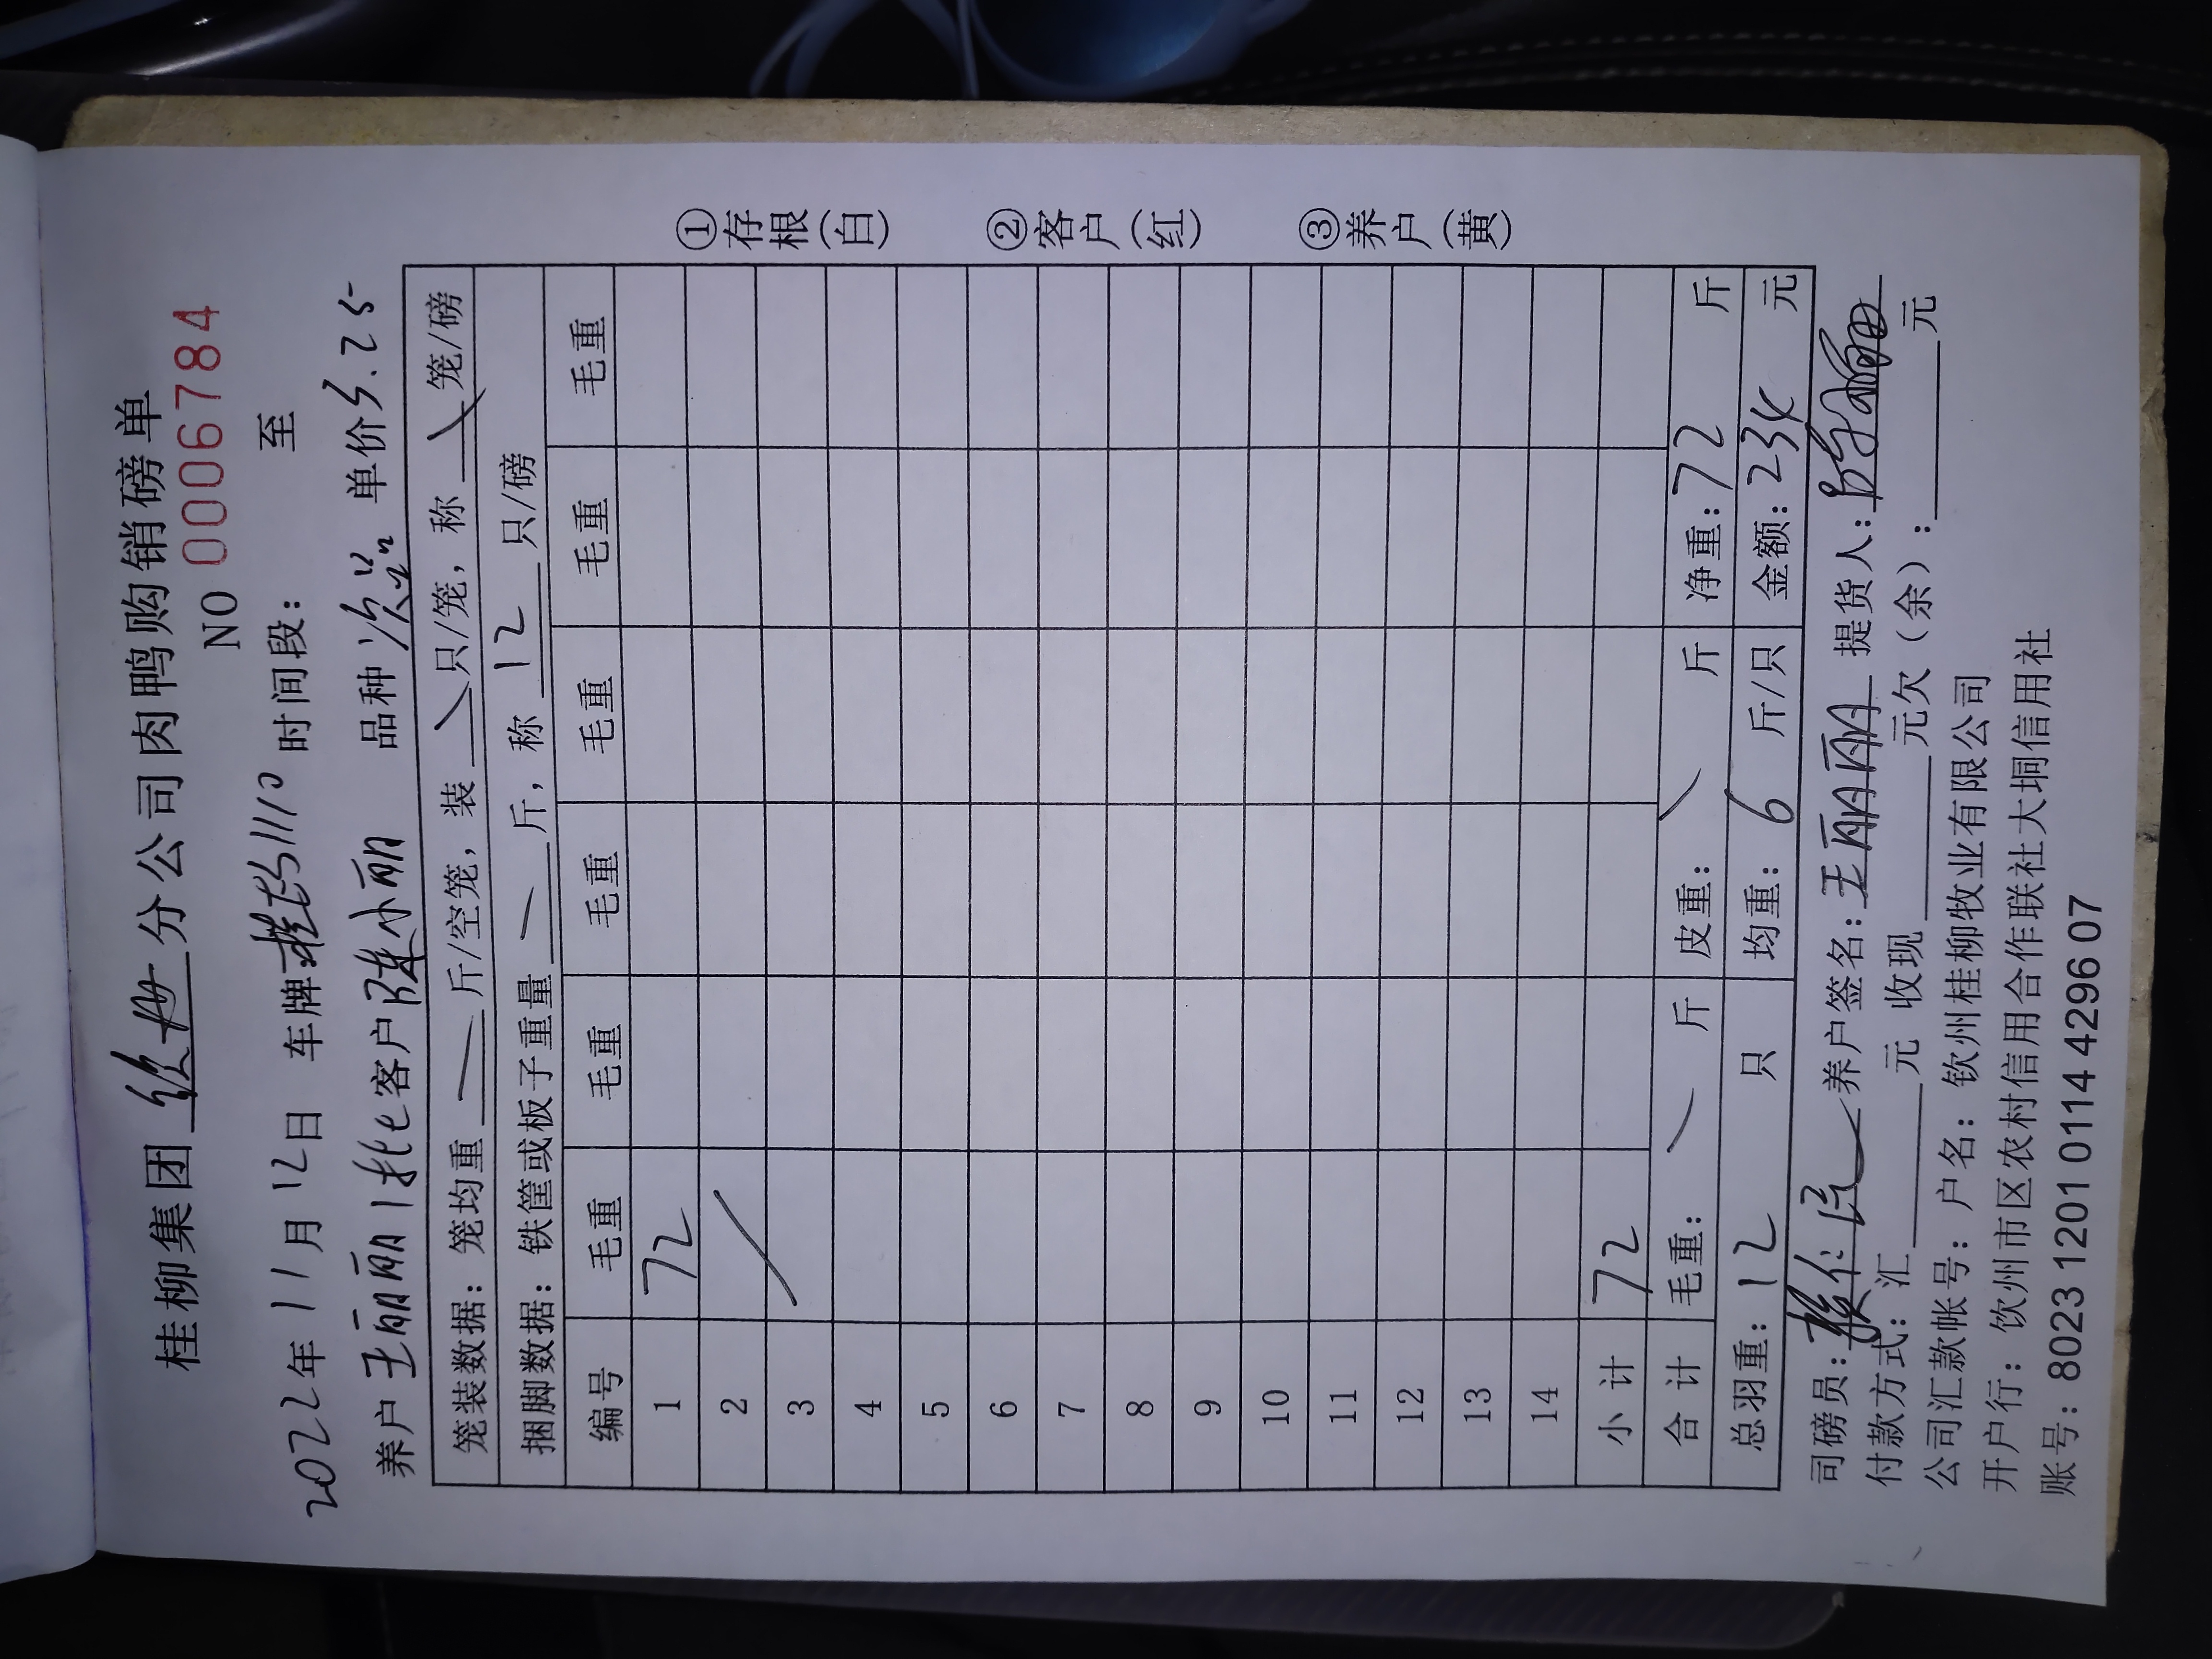 桂柳集团 钦州 分公司肉鸭购销磅单
NO 0006784
2022年 11月 12日 车牌: 11110 时间段: 至
养户 王丽丽1批 客户 陈小丽 品种 次品 单价 3.25
笼装数据：笼均重 — 斤/空笼，装 \ 只/笼，称 \ 笼/磅
捆脚数据：铁筐或板子重量 — 斤，称 12 只/磅
编号 毛重 毛重 毛重 毛重 毛重 毛重
1 72
2 /
3
4
5
6
7
8
9
10
11
12
13
14
小计 72
合计 毛重： \ 斤 皮重： \ 斤 净重：72 斤
总羽重：12 只 均重：6 斤/只 金额：234 元
司磅员： 养户签名：王丽丽 提货人：
付款方式：汇 元 收现 元欠（余）： 元
公司汇款帐号：户名：钦州桂柳牧业有限公司
开户行：饮州市区农村信用合作联社大垌信用社
账号：8023 1201 0114 4296 07
①存根（白）
②客户（红）
③养户（黄）